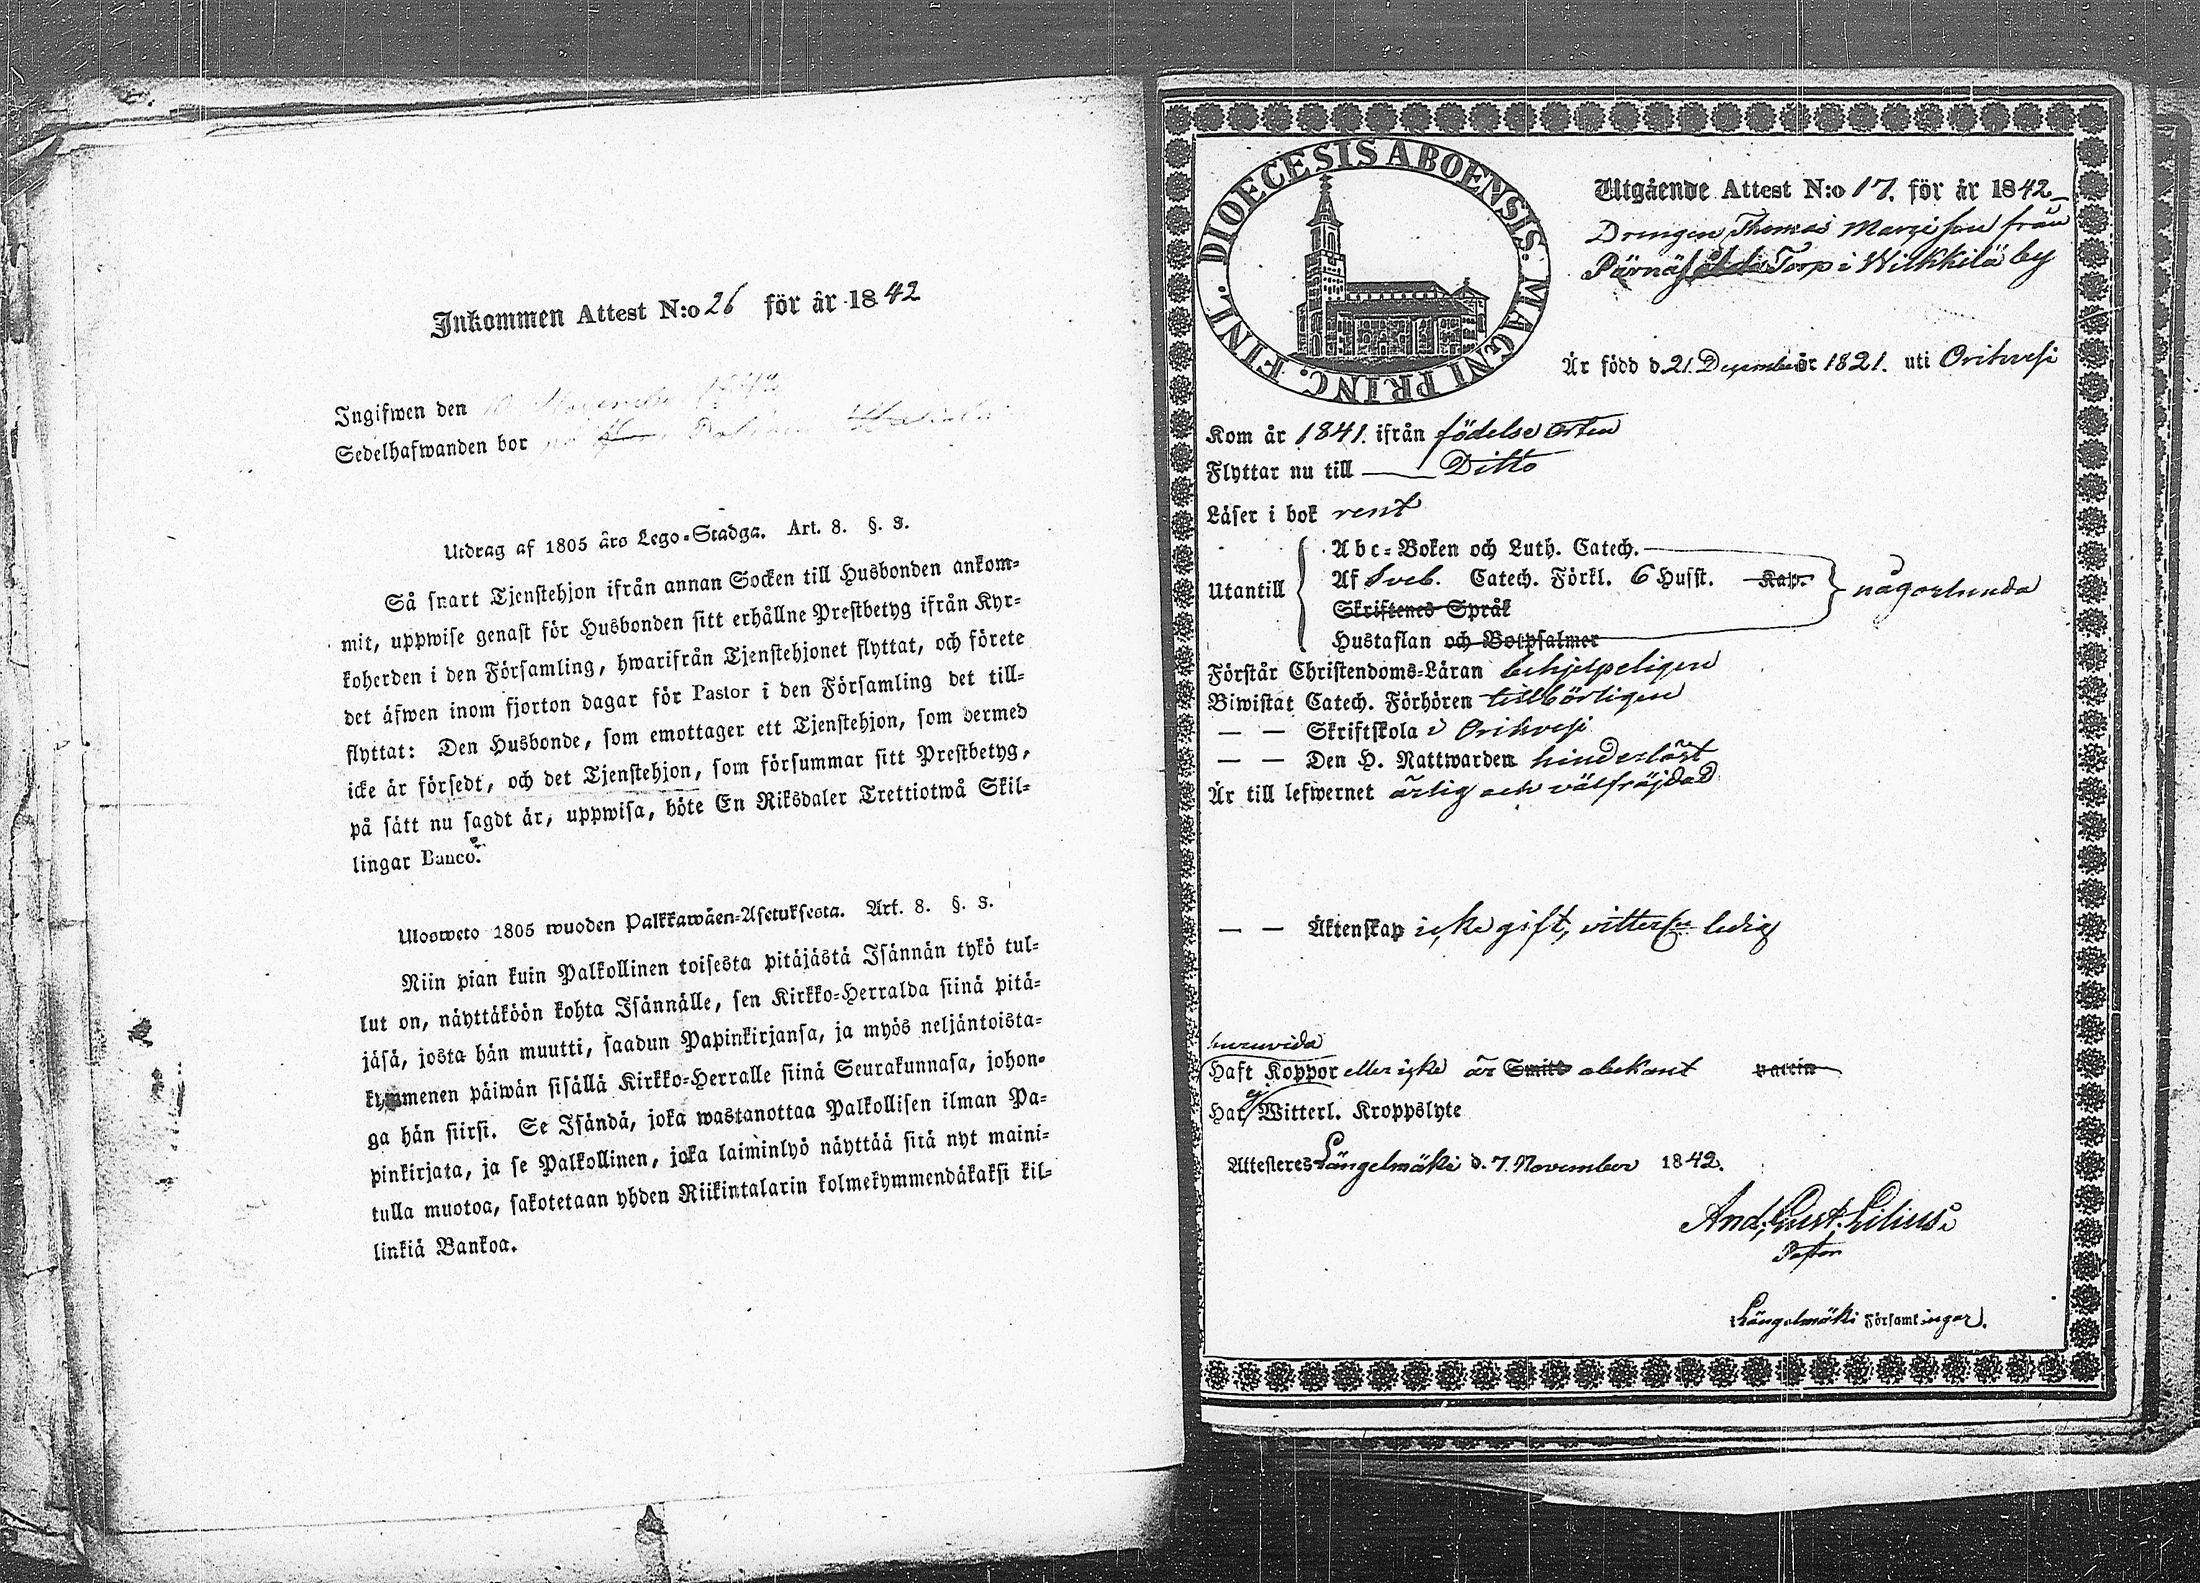 Inkommen Attest N:o 26 för år 1842
Ingifwen den November 1842
Sedelhafwanden bor
Utdrag af 1805 års Lego-Stadga. Art. 8. §. 3.
Så snart Tjenstehjon ifrån annan Socken till Husbonden ankom-
mit, uppwise genast för Husbonden sitt erhållne Prestbetyg ifrån Kyr-
koherden i den Församling, hwarifrån Tjenstehjonet flyttat, och förete
det äfwen inom fjorton dagar för Pastor i den Församling det till-
flyttat: Den Husbonde, som emottager ett Tjenstehjon, som dermed
icke är försedt, och det Tjenstehjon, som försummar sitt Prestbetyg,
på sätt nu sagdt är, uppwisa, böte En Riksdaler Trettiotwå Skil-
lingar Banco.
Ulosweto 1805 wuoden Palkkawäen-Asetuksesta. Art. 8. §. 3.
Niin pian kuin Palkollinen toisesta pitäjästä Isännän tykö tul-
lut on, näyttäköön kohta Isännälle, sen Kirkko-Herralda siinä pitä-
jäsä, josta hän muutti, saadun Papinkirjansa, ja myös neljäntoista-
kymmenen päiwän sisällä Kirkko-Herralle siinä Seurakunnasa, johon-
ga hän siirsi. Se Isändä, joka wastanottaa Palkollisen ilman Pa-
pinkirjata, ja se Palkollinen, joka laiminlyö näyttää sitä nyt maini-
tulla muotoa, sakotetaan yhden Riikintalarin kolmekymmendäkaksi kil-
linkiä Bankoa.
DIOECESIS ABOENSIS. MAGNI PRINC. FINL.
Utgående Attest N:o 17. för år 1842
Drengen Thomas Marzison från
Pärnäs Torp i Wilkkilä by
Är född d. 21. December år 1821. uti Orihvesi
Kom år 1841. ifrån födelse orten
Flyttar nu till — Ditto
Läser i bok rent
Utantill
Abc-Boken och Luth. Catech.
Af Sveb. Catech. Förkl. 6 Husst. Kap. någorlunda
Skriftenes Språk
Hustaflan och Botpsalmer
Förstår Christendoms-Läran behjelpeligen
Biwistat Catech. Förhören tillbörligen
— — Skriftskola i Orihvesi
— — Den H. Nattwarden hinderlöst
Är till lefwernet ärlig och välfräjdad
— — Äktenskap icke gift, vitterl:n ledig
huruvida
Haft Koppor eller icke är Smitt obekant vaccin
Har ej Witterl. Kroppslyte
Attesteres Längelmäki d. 7. November 1842.
And. Gust. Lilius
Pastor
Längelmäki Församlingar.